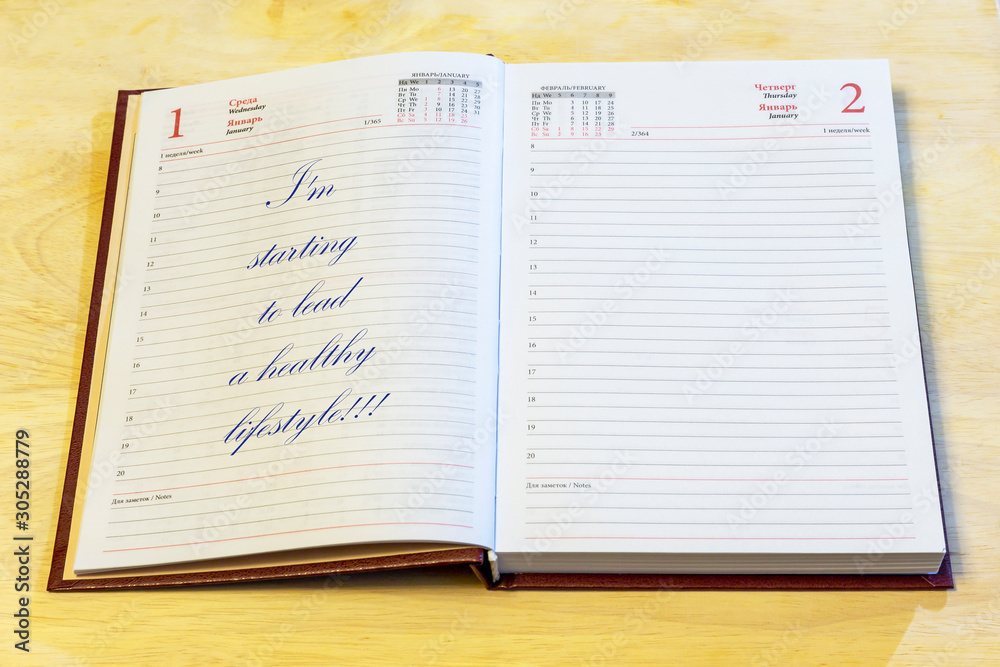 1
Среда
Wednesday
Январь
January
1/365
ЯНВАРЬ/JANUARY
Нд We 1 2 3 4 5
Пн Mo 6 13 20 27
Вт Tu 7 14 21 28
Ср We 1 8 15 22 29
Чт Th 2 9 16 23 30
Пт Fr 3 10 17 24 31
Сб Sa 4 11 18 25
Вс Su 5 12 19 26
1 неделя/week
8
9
10
11
12
13
14
15
16
17
18
19
20
Для заметок / Notes
I'm
starting
to lead
a healthy
lifestyle!!!
ФЕВРАЛЬ/FEBRUARY
Нд We 5 6 7 8 9
Пн Mo 3 10 17 24
Вт Tu 4 11 18 25
Ср We 5 12 19 26
Чт Th 6 13 20 27
Пт Fr 7 14 21 28
Сб Sa 1 8 15 22 29
Вс Su 2 9 16 23
2/364
Четверг
Thursday
Январь
January
2
1 неделя/week
8
9
10
11
12
13
14
15
16
17
18
19
20
Для заметок / Notes
Adobe Stock | #305288779